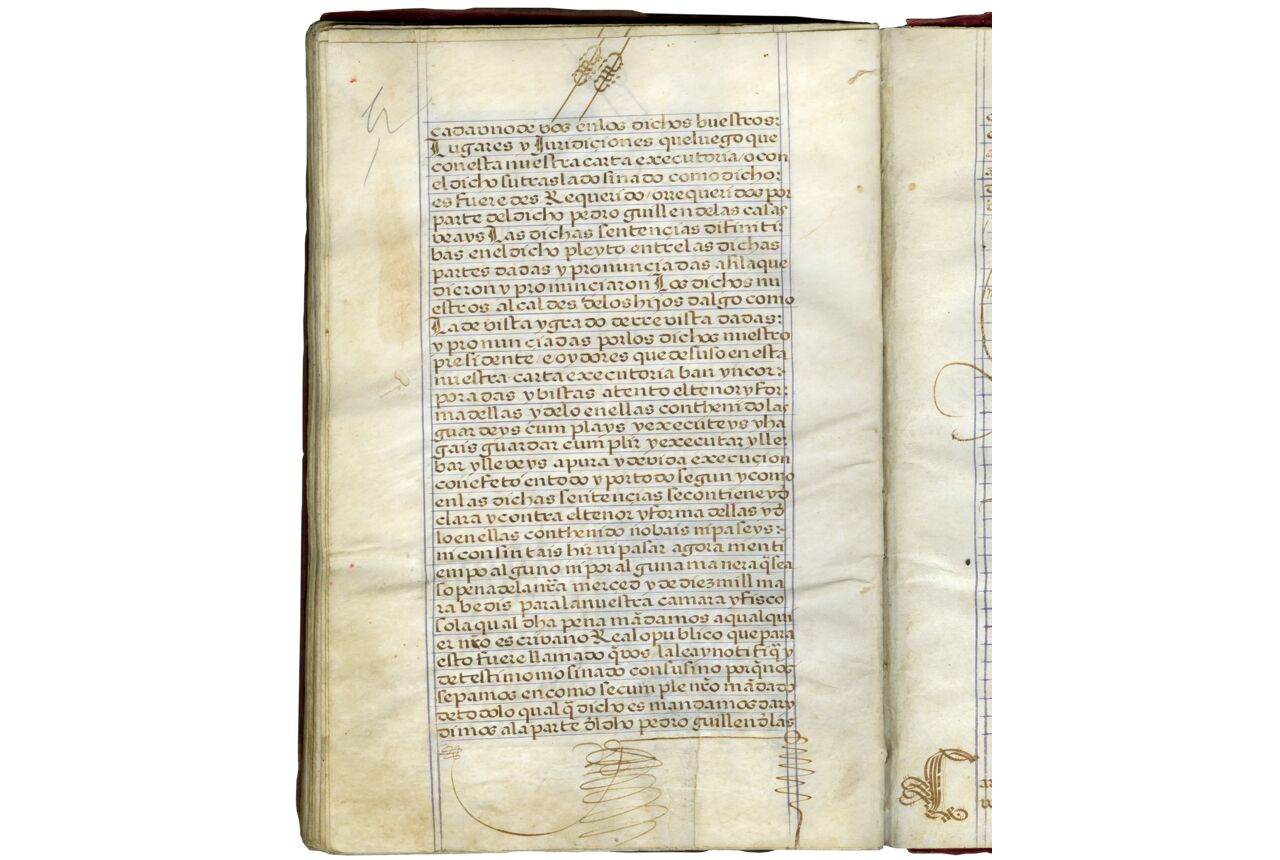 cada uno de vos en los dichos buestros:
Lugares y Juridiçiones que luego que
con esta nuestra carta executoria / o con
el dicho su traslado sinado como dicho:
es fueredes Requerido / o requeridos por
parte del dicho pedro guillen de las casas
beays Las dichas sentencias difiniti:
bas en el dicho pleyto entre las dichas
partes dadas y pronunciadas asi la que
dieron y pronunciaron Los dichos nu
estros alcaldes de los hijos dalgo como
La de bista y grado de rrebista dadas:
y pronunciadas por los dichos nuestro
presidente / e oydores que de suso en esta
nuestra carta executoria ban yncor:
poradas y bistas atento el tenor y for:
ma dellas y de lo en ellas conthenido las
guardeys cumplays y executeys y ha
gais guardar cumplir y executar y lle:
bar y lleveys a pura y devida execuçion
con efeto en todo y por todo segun y como
en las dichas sentençias se contiene y d̃
clara y contra el tenor y forma dellas y d̃
lo en ellas conthenido no bais ni paseys:
ni consintais hir ni pasar agora ni en ti
empo alguno ni por alguna manera q̃ sea
so pena de la nr̃a merced y de diez mill ma
rabedis para la nuestra camara y fisco
so la qual dha pena mãdamos a qualqui
er nr̃o escribano Real o publico que para
esto fuere llamado q̃ vos la lea y notifiq̃ y
de testimonio sinado con su sino porq̃ nos
sepamos en como se cumple nr̃o mãdado
de todo lo qual q̃ dicho es mandamos dar y
dimos a la parte d̃l dho pedro guillen d̃ las